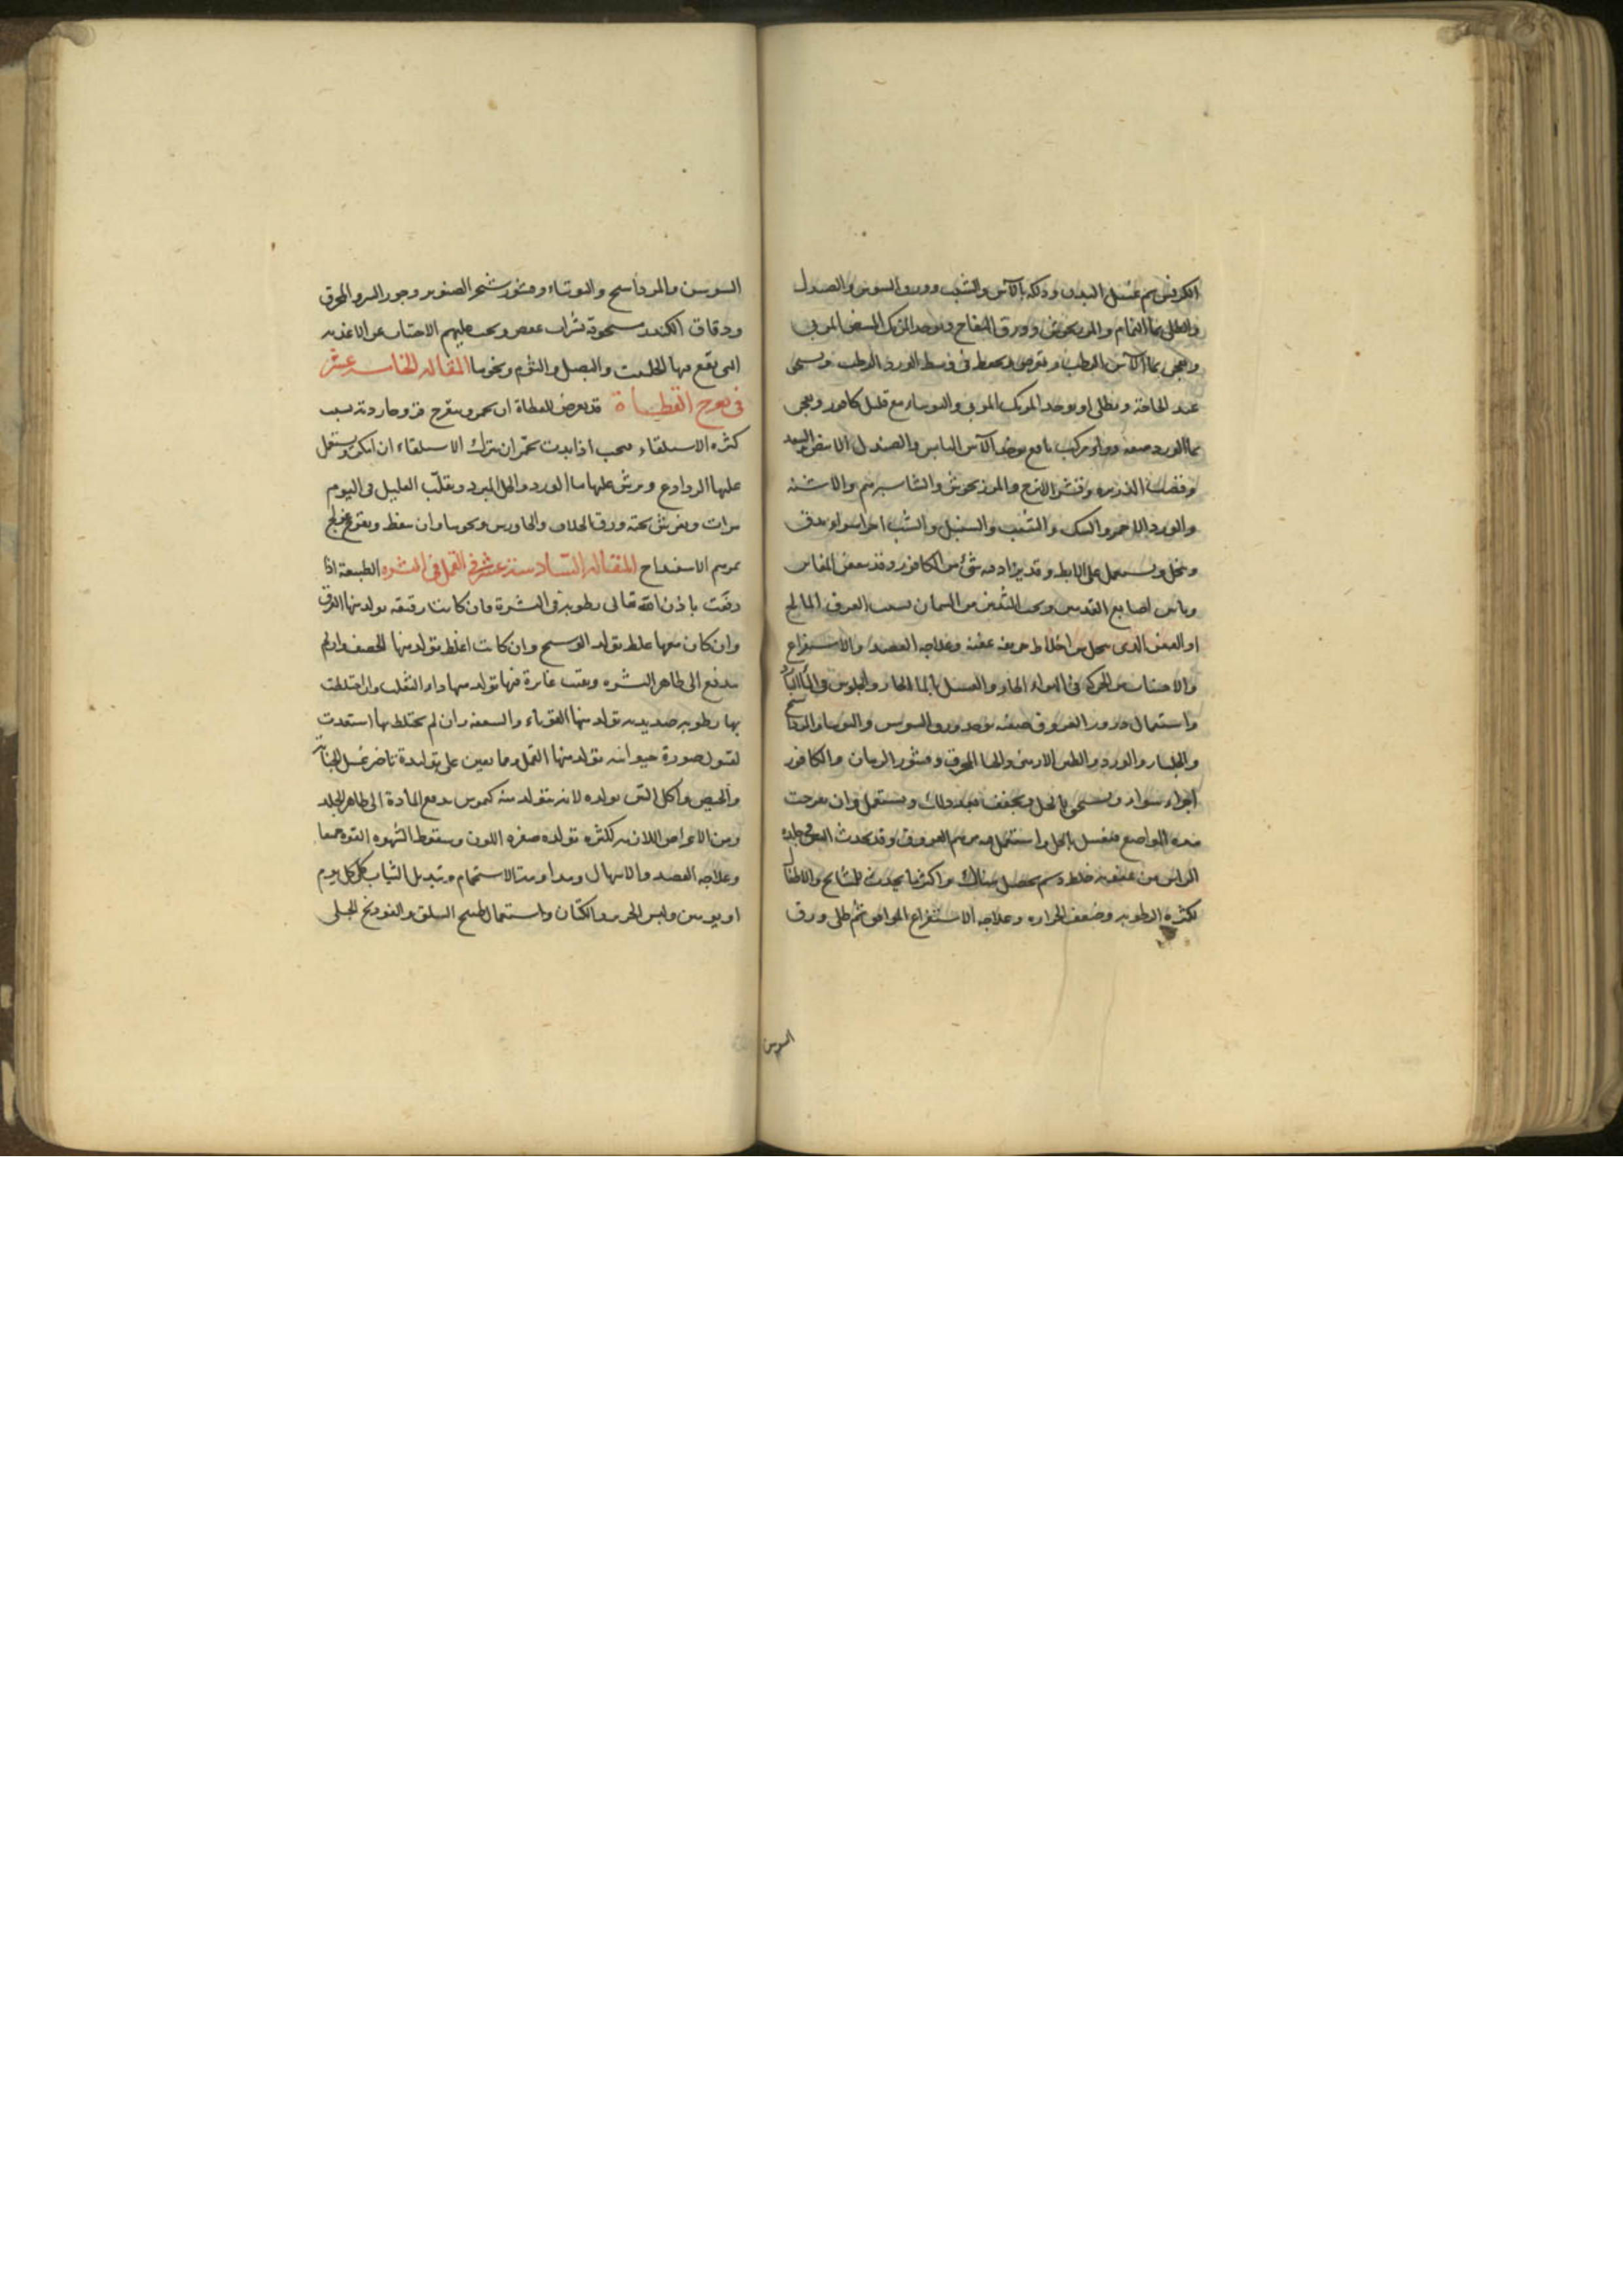 الكرفس ثم غسل البدن ودلكه بالآس والشب وورق السوسن والصندل
والطلى بماء النمام والمرزنجوش وورق التفاح ويوخذ المرتك المبيض المربى
ويعجن بماء الآس الرطب ويقرص ويحفظ فى وسط الورد الرطب ويسحق
عند الحاجة ويطلى او يوخذ المرتك المربى والتوتياء مع قليل كافور ويعجن
بماء الورد صفة دواء مركب نافع يوخذ الآس اليابس والصندل الابيض والسعد
وقصب الذريرة وقشر الاترج والمرزنجوش والشاسبرم والاشنه
والورد الاحمر والسك والشب والسنبل والشب اجزا سواء يدق
وينخل ويستعمل على الابط وقد يزاد فيه شئ من الكافور وقد يعفن المغابن
وما بين اصابع القدمين وتحت الثديين من السمان بسبب العرق المالح
او العفن الذى يتحلل من اخلاط حريفه عفنه وعلاجه الفصد والاستفراغ
والاجتناب من الحركه فى الهواء الحار والغسل بالماء الحار والجلوس فى الماء البارد
واستعمال ذرور العروق صفته يوخذ ورق السوسن والتوتيا والمرداسنج
والجلنار والورد والطين الارمنى والحنا المحرق وقشور الرمان والكافور
اجزاء سواء ويسحق بالخل ويجفف بعد ذلك ويستعمل وان تقرحت
هذه المواضع فتغسل بالخل واستعمل فيه مرهم العروق وقد يحدث العفن فى جلدة
الراس من عفونة خلط دسم يحصل هناك واكثر ما يحدث للمشايخ والاطفال
لكثرة الرطوبه وضعف الحراره وعلاجه الاستفراغ الموافق ثم طلى ورق
السوسن
السوسن والمرداسنج والتوتياء وقشور شجر الصنوبر وجوز السرو المحرق
ودقاق الكندر مسحوقة بشراب عفص ويجب عليهم الاجتناب عن الاغذيه
التى يقع فيها الحلتيت والبصل والثوم ونحوها المقاله الخامسة عشر
فى تقرح القطاة قد يعرض للقطاة ان يحمر ويتقرح من وحاردته بسبب
كثره الاستلقاء فيجب اذا بدت تحمر ان يترك الاستلقاء ان امكن ويستعمل
عليها الروادع ويرش عليها ماء الورد والخل المبرد ويقلب العليل فى اليوم
مرات ويفرش تحته ورق الخلاف والجاورس ونحوهما وان سقط وتقرح عولج
بمرهم الاسفيداج المقاله السادسة عشر فى القمل فى البشره الطبيعة اذا
دفعت باذن الله تعالى رطوبة فى البشرة فان كانت رقيقه تولد منها العرق
وان كان معها غلظ تولد الوسخ وان كانت اغلظ تولد منها الحصف وان لم
يندفع الى ظاهر البشره وبقيت غائرة فيها تولد منها داء الثعلب وان اختلطت
بها رطوبه صديديه تولد منها القوباء والسعفه وان لم يختلط بها استعدت
لقبول صورة حيوانيه تولد منها القمل ومما يعين على تولده تاخير غسل الجنابة
والحيض واكل التين يولده لانه يتولد منه كيموس يدفع المادة الى ظاهر الجلد
ومن الاعراض اللازمه لكثره تولده صفره اللون وسقوط الشهوه القوه جمعا
وعلاجه الفصد والاسهال ومداومة الاستحمام وتبديل الثياب فى كل يوم
او يومين ولبس الحرير والكتان واستعمال طبيخ السلق والفوتنج الجبلى